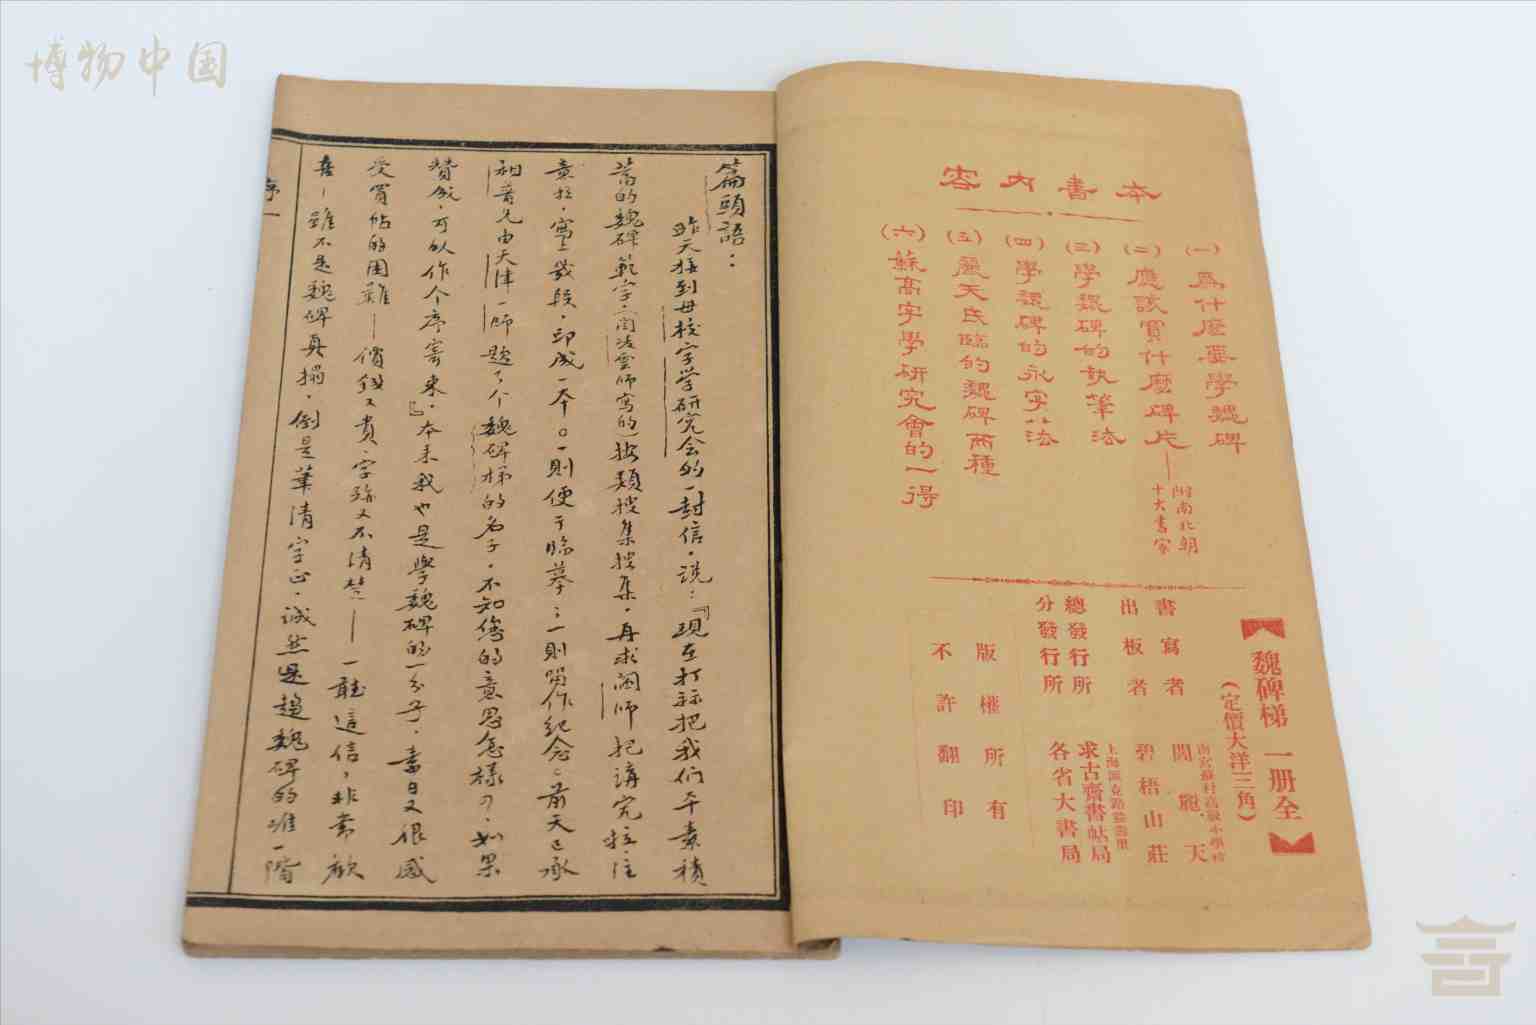 博物中国
本書內容
(一)爲什麼要學魏碑
(二)應該買什麼碑片——附南北朝十大書家
(三)學魏碑的執筆法
(四)學魏碑的永字八法
(五)麗天氏臨的魏碑兩種
(六)蘇高字學研究會的一得
【魏碑梯 一册全】
(定價大洋三角)
書寫者 南宮蘇村高級小學校 閻麗天
出板者 碧梧山莊
總發行所 求古齋書帖局
分發行所 各省大書局
版權所有
不許翻印
篇頭語:
昨天接到母校字學研究会的一封信。說:『現在打算把我們平素積
蓄的魏碑範字、閻凌雲師寫的按類搜集搜集。再求閻師把講究拉、注
意拉,寫上幾段。印成一本。一則便于臨摹;一則留作紀念。前天已承
祖蔭兄由天津一師題了个魏碑梯的名子。不知您的意思怎樣?如果
贊成。可以作个序寄來。』本来我也是學魏碑的一分子。素日又很感
受買帖的困難——價錢又貴、字跡又不清楚——一聽這信,非常歡
喜!雖不是魏碑真搨。倒是筆清字正。誠然是趨魏碑的唯一階
序一